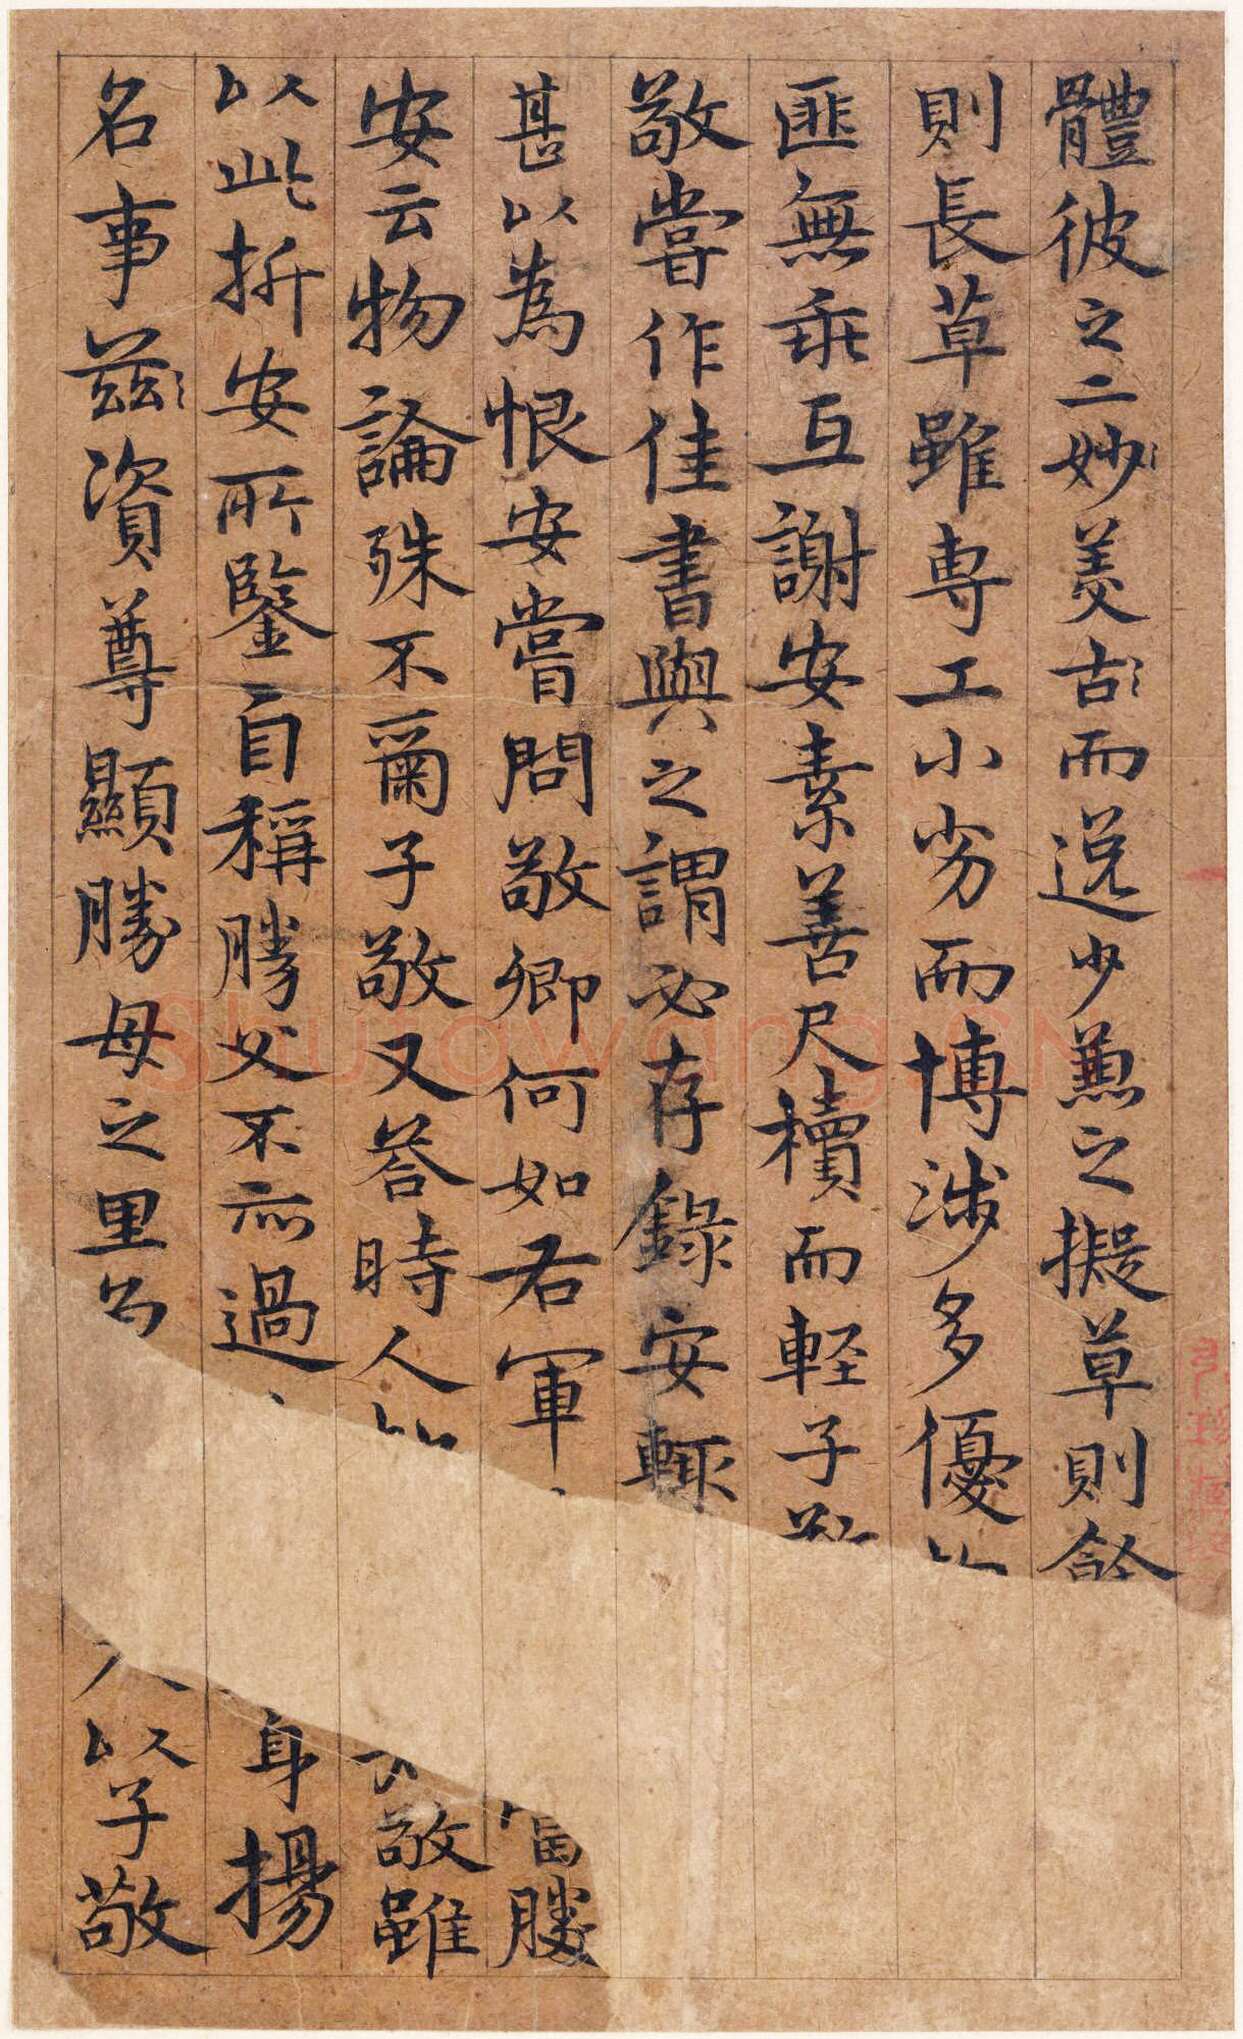 體彼之二妙〻美古〻而逸少兼之擬草則餘
則長草雖專工小劣而博涉多優
匪無乖互謝安素善尺牘而輕子敬
敬嘗作佳書與之謂必存錄安輒
甚以為恨安嘗問敬卿何如右軍 當勝
安云物論殊不爾子敬又荅時人 敬雖
以此折安所鑒自稱勝父不亦過 身揚
名事茲〻資尊顯勝母之里 以子敬
Shufawang.CN